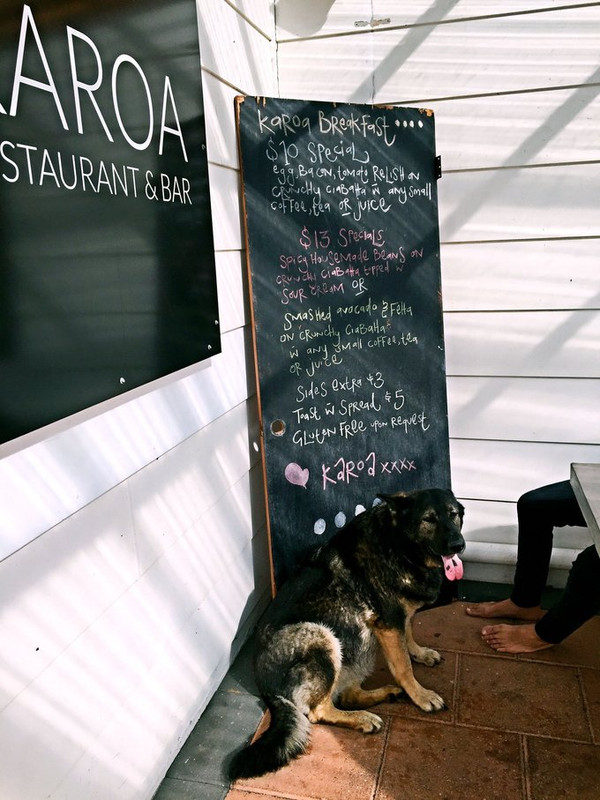 KAROA
STAURANT & BAR
Karoa Breakfast ....
$10 Special
egg, Bacon, tomato Relish on
crunchy ciabatta w̄ any small
coffee, tea or juice
$13 Specials
Spicy Housemade Beans on
crunchy ciabatta topped w
sour cream OR
Smashed avocado & Fetta
on crunchy ciabatta
w̄ any small coffee, tea
or juice
Sides extra $3
Toast w̄ Spread $5
Gluten Free upon Request
Karoa xxxx